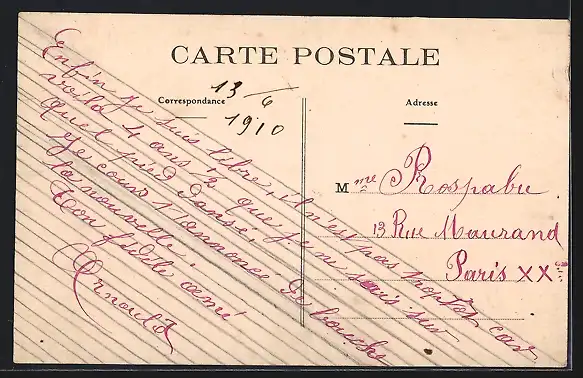 CARTE POSTALE
Correspondance
13/6
1910
Adresse
Enfin je suis libre, il n'est pas trop tôt car
voilà 4 ans ½ que je n' sais sur
quel pied danser.
Je cours t'annoncer de bouche
la nouvelle.
Ton fidèle ami
Arnould
Mme Rospabu
13 Rue Maurand
Paris XXe